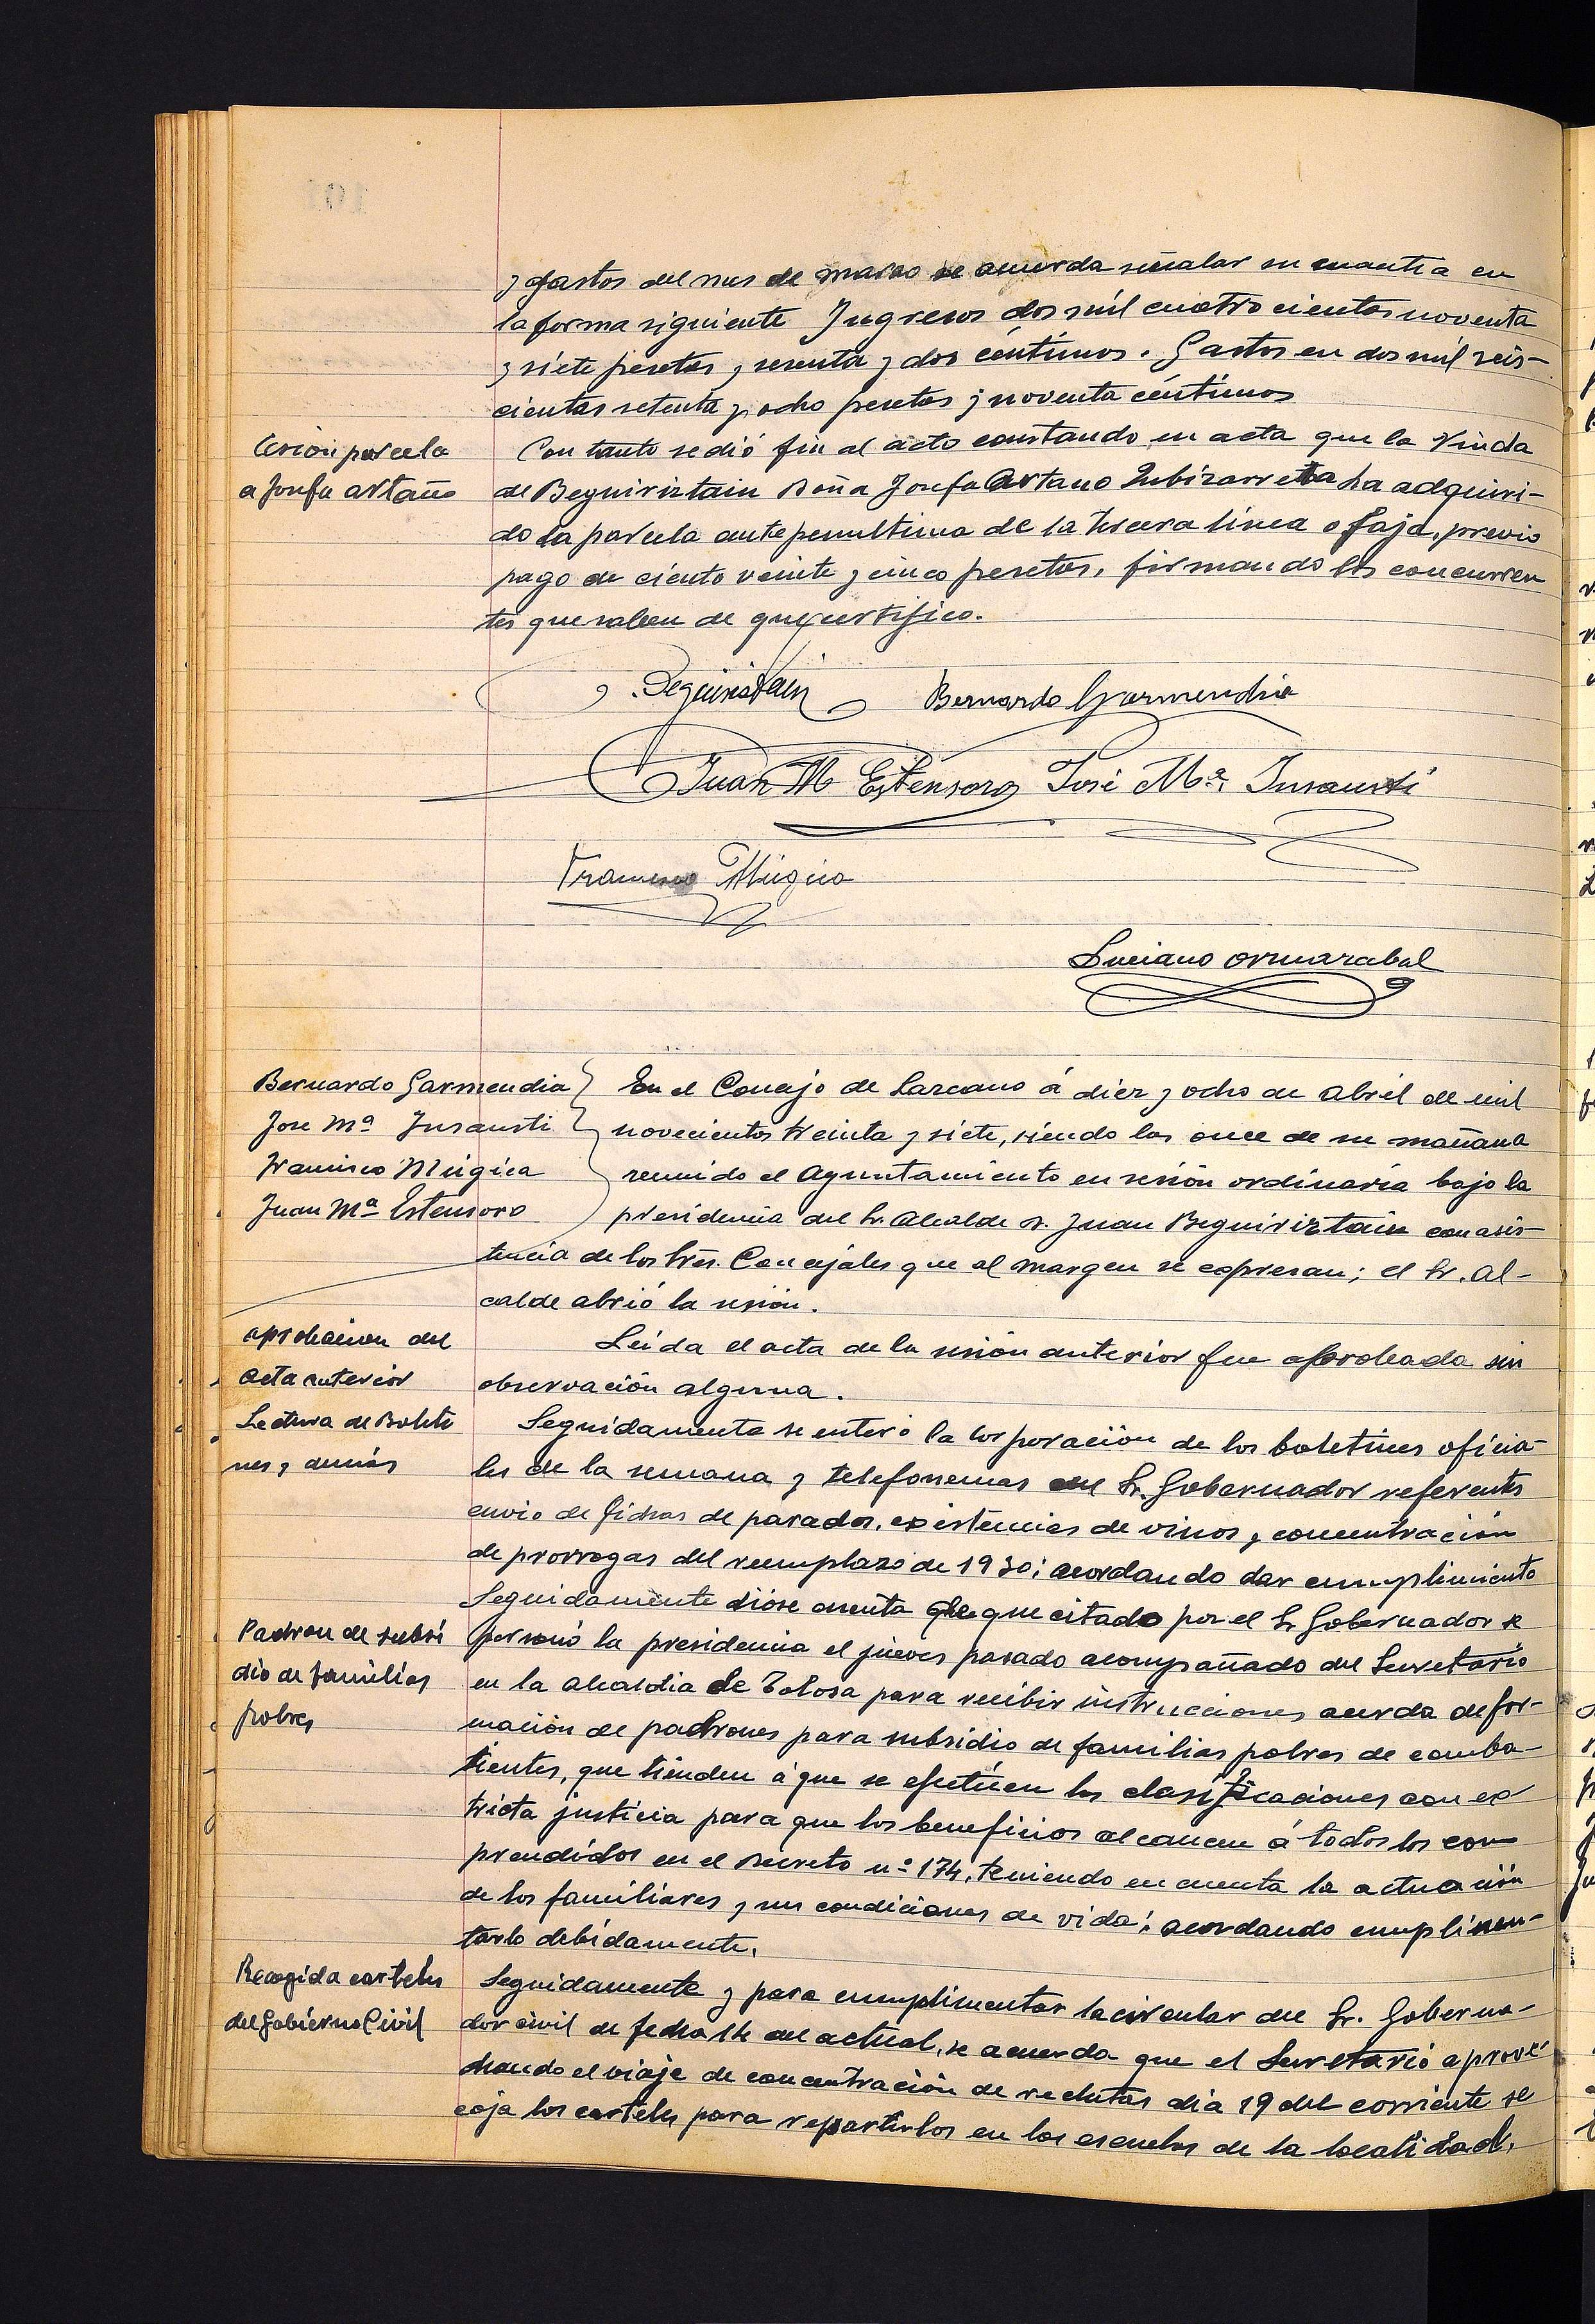 y gastos del mes de marzo se acuerda señalar su cuantia en
la forma siguiente Ingresos dos mil cuatrocientas noventa
y siete pesetas y sesenta y dos céntimos. Gastos en dos mil seis-
cientas setenta y ocho pesetas y noventa céntimos
Cesion parcela
a Josefa Artano
Con tanto se dió fin al acto constando en acta que la Viuda
de Beguiristain Doña Josefa Artano Zubizarreta ha adquiri-
do la parcela antepenultima de la tercera línea o faja, previo
pago de ciento veinte y cinco pesetas, firmando los concurren
tes que saben de que certifico.
Beguiristain
Bernardo Garmendia
Juan M Estensoro
José Mª Insausti
Francisco Múgica
Luciano Ormazabal
Bernardo Garmendia
Jose Mª Insausti
Francisco Múgica
Juan Mª Estensoro
En el Concejo de Lazcano á diez y ocho de Abril de mil
novecientos treinta y siete, siendo las once de su mañana
reunido el Ayuntamiento en sesión ordinaria bajo la
presidencia del Sr. Alcalde D. Juan Beguiriztain con asis-
tencia de los Sres. Concejales que al margen se expresan; el Sr. Al-
calde abrió la sesión.
aprobacion del
acta anterior
Leída el acta de la sesión anterior fue aprobada sin
observación alguna.
Lectura de Boleti
nes y demás
Seguidamente se enteró la Corporación de los boletines oficia-
les de la semana y telefonemas del Sr. Gobernador referentes
envio de fichas de parados, existencias de vinos y concentración
de prorrogas del reemplazo de 1930; acordando dar cumplimiento
Padron de subsi
dio de familias
pobres
Seguidamente dióse cuenta que citado por el Sr Gobernador se
personó la presidencia el jueves pasado acompañado del Secretario
en la alcaldia de Tolosa para recibir instrucciones acerda de for-
mación de padrones para subsidio de familias pobres de comba-
tientes, que tienden á que se efectúen las clasificaciones con ex
tricta justicia para que los beneficios alcancen á todos los com
prendidos en el Decreto nº 174, teniendo en cuenta la actuación
de los familiares y sus condiciones de vida; acordando cumplimen-
tarlo debidamente.
Recogida carteles
del Gobierno Civil
Seguidamente y para cumplimentar la circular del Sr. Goberna-
dor civil de fecha 14 del actual, se acuerda que el Secretario aprove
chando el viaje de concentración de reclutas dia 19 del corriente re
coja los carteles para repartirlos en las escuelas de la localidad.